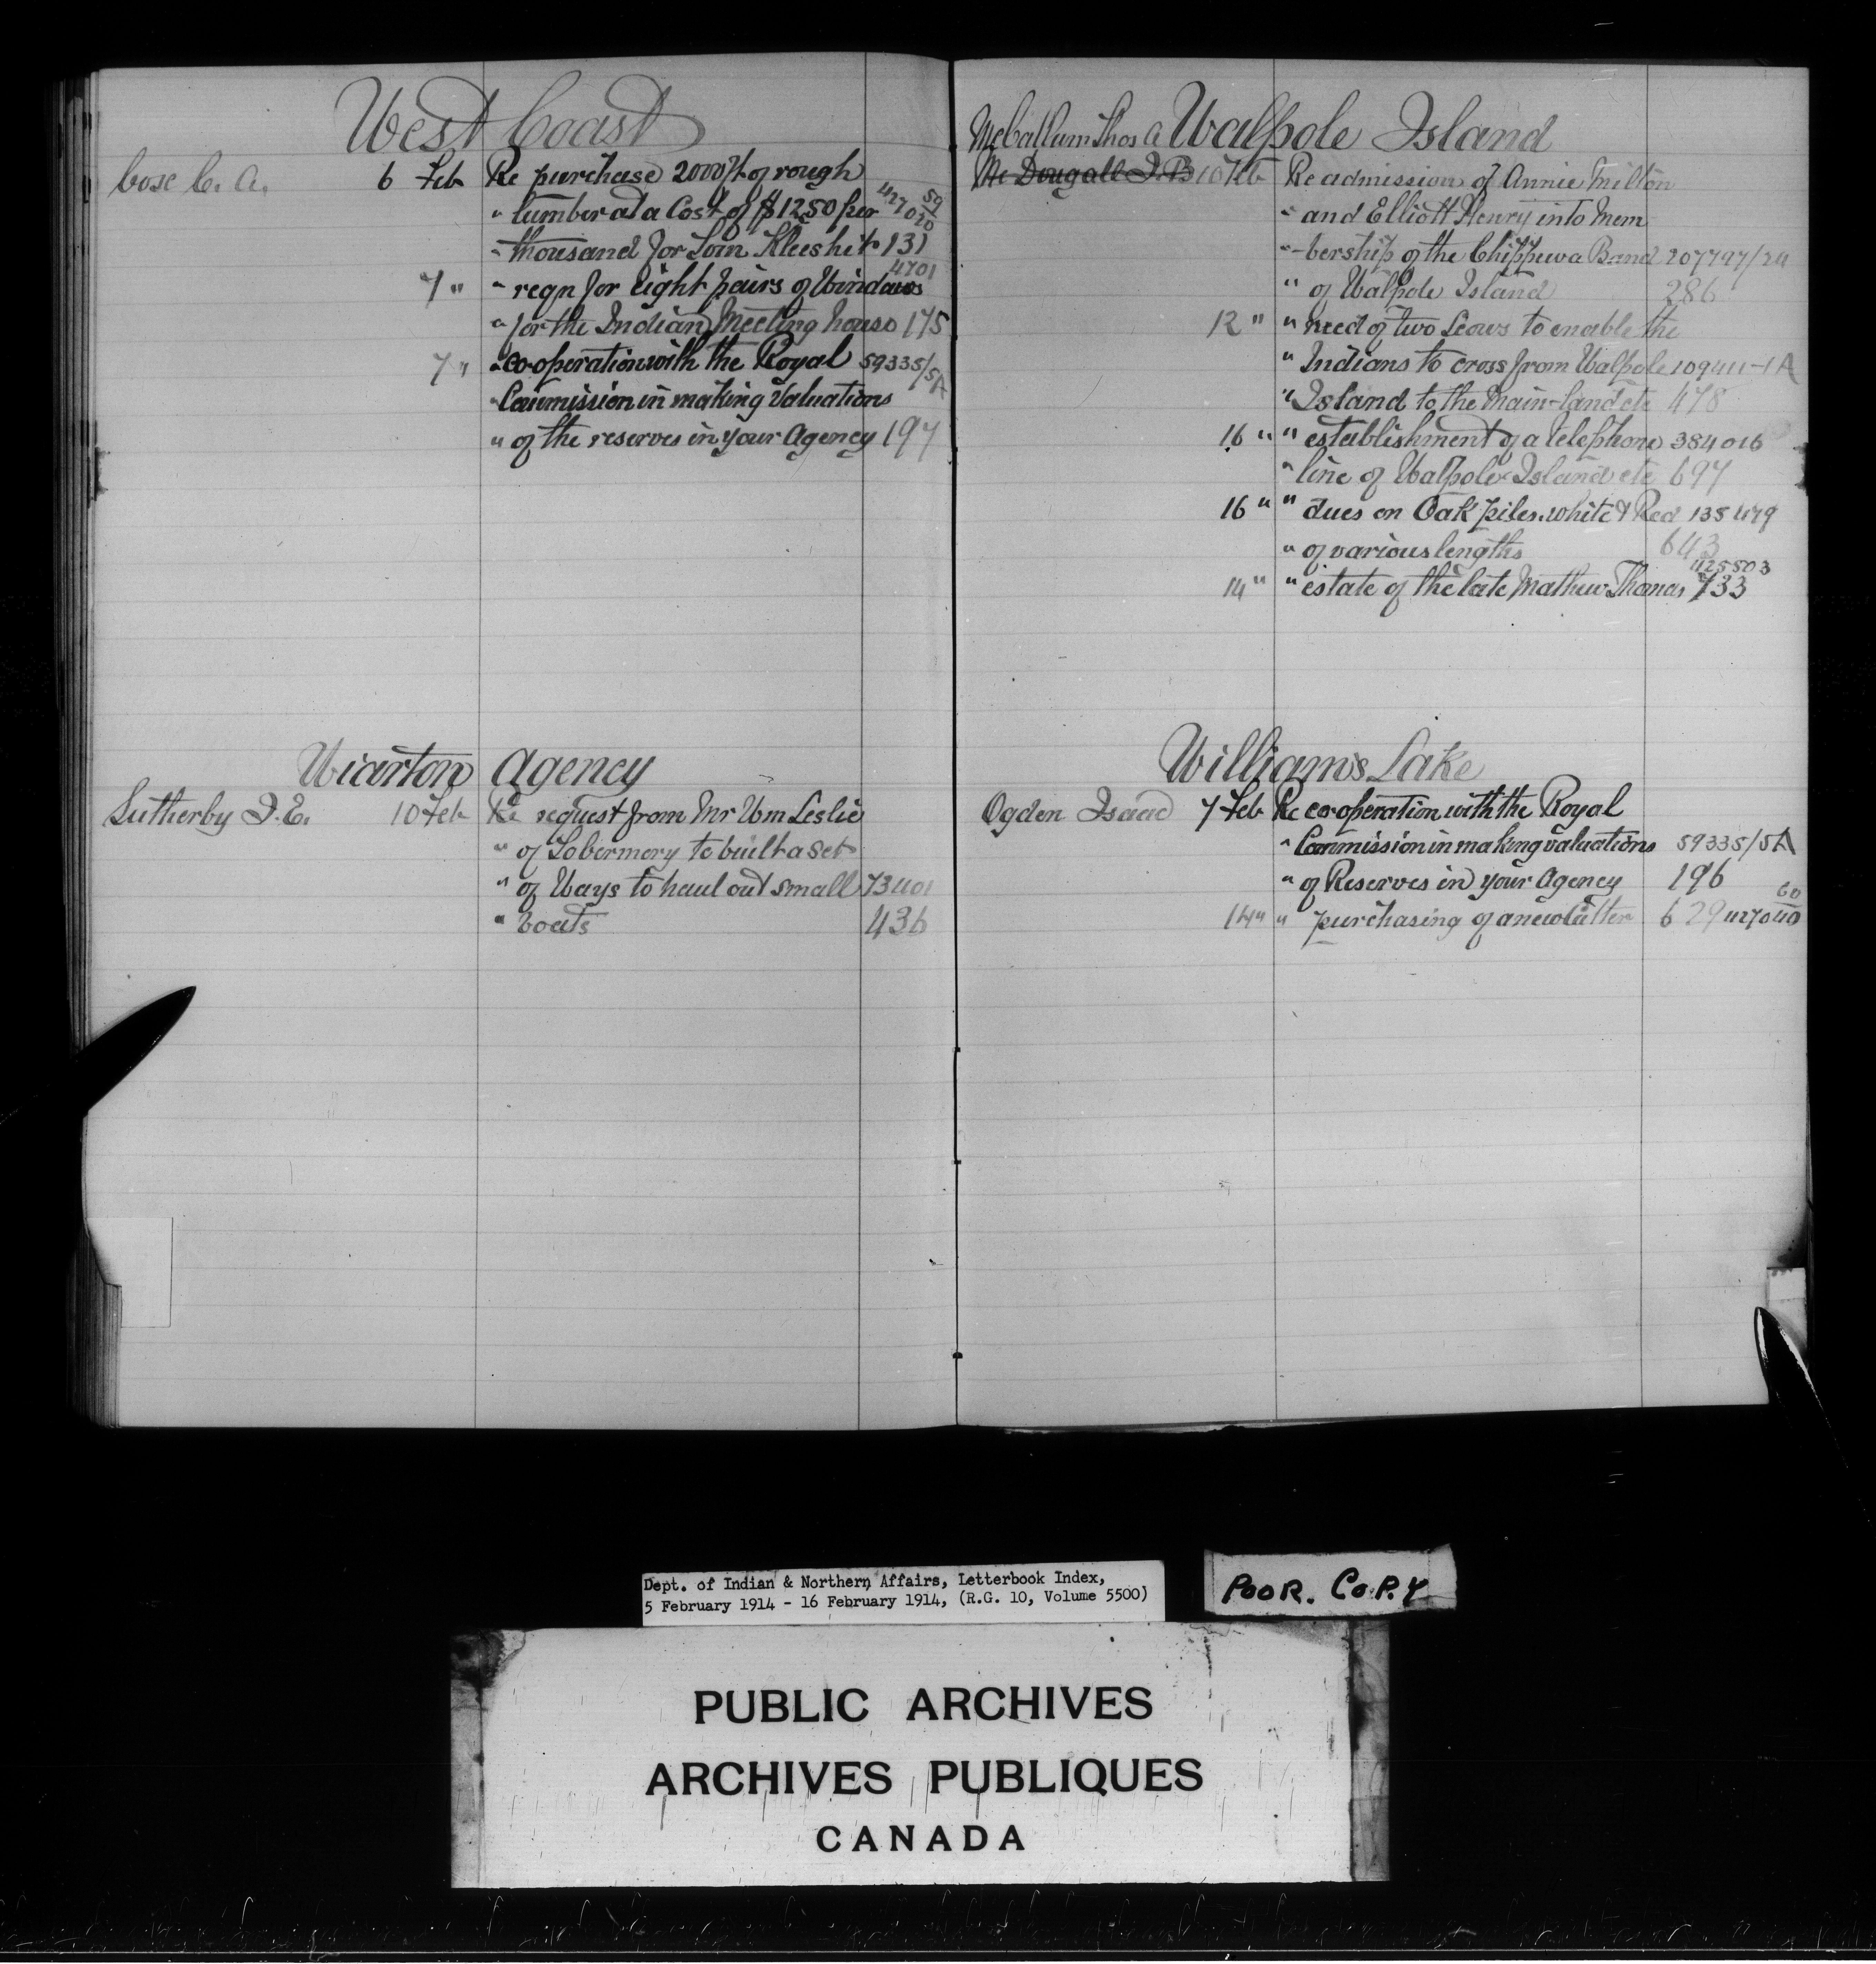 West Coast
Cose C. A. 6 Feb Re purchase 2000 ft of rough
" lumber at a Cost of $1250 per 427020 59
" thousand for Tom Kleeshit 131
7 " " reqn for eight pairs of Windows 4701
" for the Indian Meeting house 175
7 " " co-operation with the Royal 59335/5A
" Commission in making Valuations
" of the reserves in your Agency 197
Wiarton Agency
Sutherby I. E. 10 Feb Re request from Mr Wm Leslie
" of Tobermory to built a set
" of Ways to haul out small 73401
" boats 436
McCallum Thos A Walpole Island
Mc Dougall J. B 10 Feb Re admission of Annie Milton
" and Elliott Henry into Mem
" -bership of the Chippewa Band 207797/24
" of Walpole Island 286
12 " " need of two Scows to enable the
" Indians to cross from Walpole 109411-1A
" Island to the Main-land etc 478
16 " " establishment of a telephone 384016
" line of Walpole Island etc 697
16 " " dues on Oak piles white & Red 135479
" of various lengths 643
14 " " estate of the late Mathew Thomas 425503 733
Williams Lake
Ogden Isaac 7 Feb Re co-operation with the Royal
" Commission in making valuations 59335/5A
" of Reserves in your Agency 196
14 " " purchasing of a new Cutter 629 427040 60
Dept. of Indian & Northern Affairs, Letterbook Index,
5 February 1914 - 16 February 1914, (R.G. 10, Volume 5500)
POOR. COPY
PUBLIC ARCHIVES
ARCHIVES PUBLIQUES
CANADA